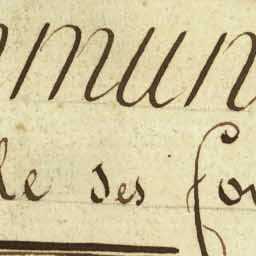 mmun
le des Con